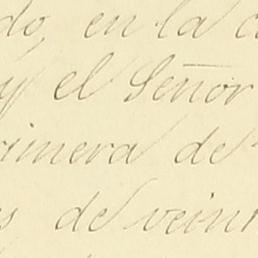 do, en la c
y el Señor
rimera de
s de veint